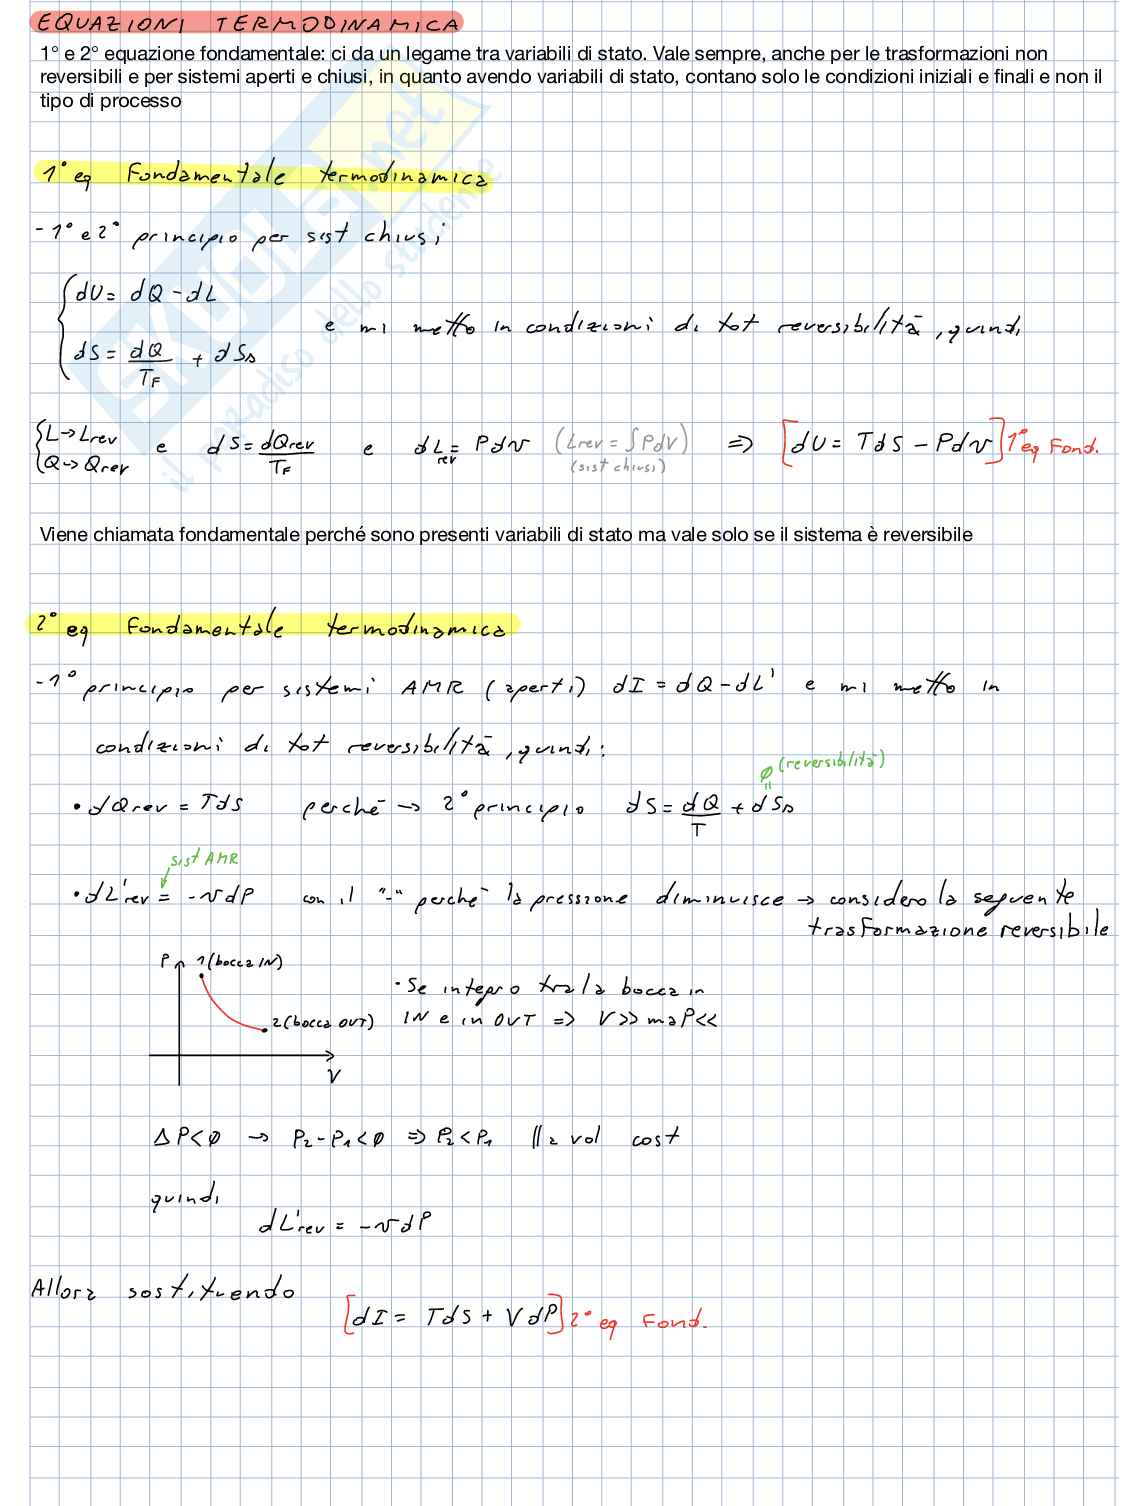 EQUAZIONI TERMODINAMICA
1° e 2° equazione fondamentale: ci da un legame tra variabili di stato. Vale sempre, anche per le trasformazioni non
reversibili e per sistemi aperti e chiusi, in quanto avendo variabili di stato, contano solo le condizioni iniziali e finali e non il
tipo di processo
1° eq Fondamentale termodinamica
- 1° e 2° principio per sist chiusi
dU = dQ - dL
dS = dQ/T_F + dS_s e mi metto in condizioni di tot reversibilità, quindi
L → Lrev
Q → Qrev e dS = dQrev/T_F e dL_rev = Pdv (Lrev = ∫PdV) (sist chiusi) ⇒ [dU = TdS - Pdv] 1° eq Fond.
Viene chiamata fondamentale perché sono presenti variabili di stato ma vale solo se il sistema è reversibile
2° eq Fondamentale termodinamica
- 1° principio per sistemi AMR (aperti) dI = dQ - dL' e mi metto in
condizioni di tot reversibilità, quindi:
ø (reversibilità)
• dQrev = TdS perché → 2° principio dS = dQ/T + dS_s
sist AMR
• dL'rev = -vdP con il "-" perché la pressione diminuisce → considero la seguente
trasformazione reversibile
P 1 (bocca IN)
2 (bocca OUT)
V
· Se integro tra la bocca in
IN e in OUT ⇒ V>> ma P<<
ΔP<ø → P₂-P₁<ø ⇒ P₂<P₁ || a vol cost
quindi
dL'rev = -vdP
Allora sostituendo
[dI = TdS + VdP] 2° eq Fond.
SKUOLA.net
il paradiso dello studente